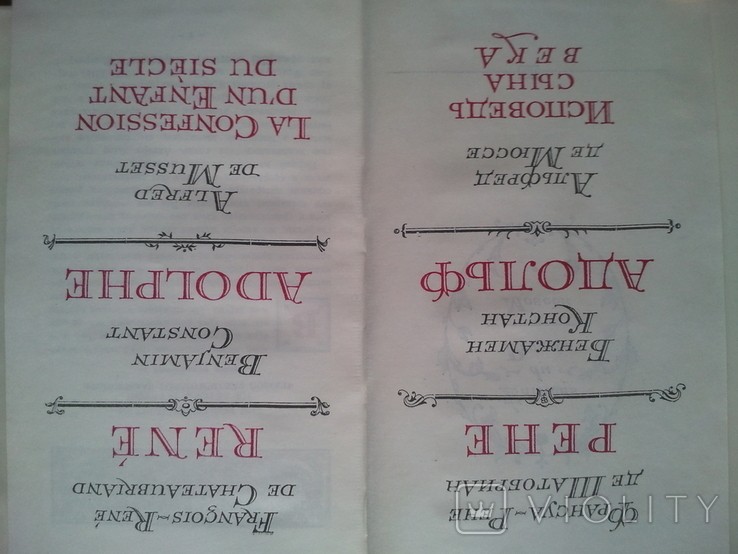 Франсуа-Рене
де Шатобриан
РЕНЕ
Бенжамен
Констан
АДОЛЬФ
Альфред
де Мюссе
Исповедь
сына
века
François-René
de Chateaubriand
RENÉ
Benjamin
Constant
ADOLPHE
Alfred
de Musset
La Confession
d'un Enfant
du siècle
VIOLITY